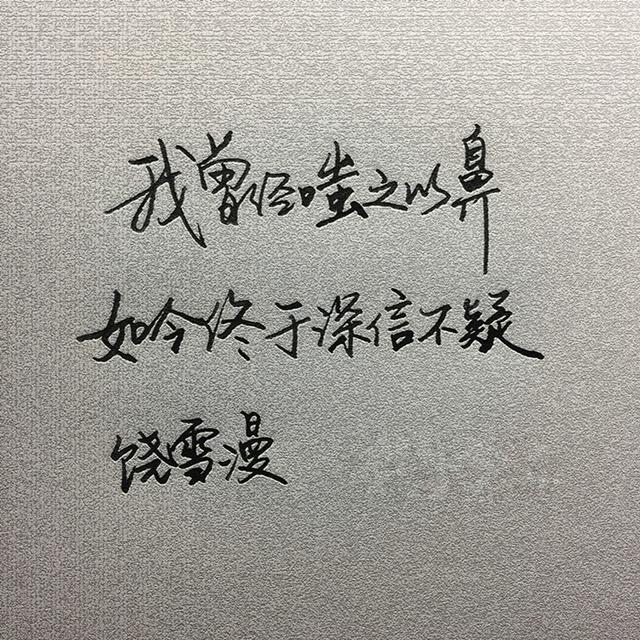 我曾经嗤之以鼻
如今终于深信不疑
饶雪漫